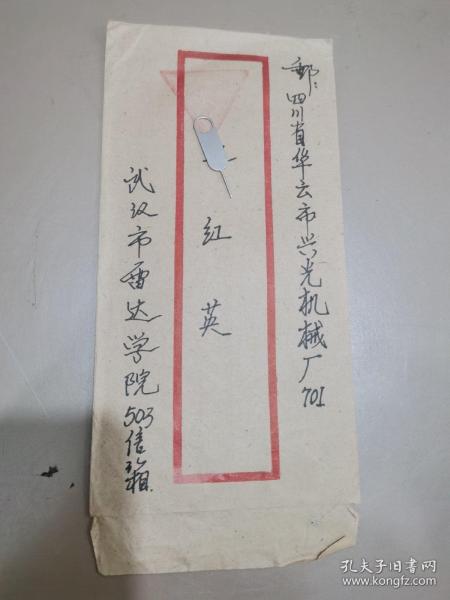 邮：四川省华云市兴光机械厂701
红英
武汉市雷达学院503信箱
孔夫子旧书网
www.kongfz.com